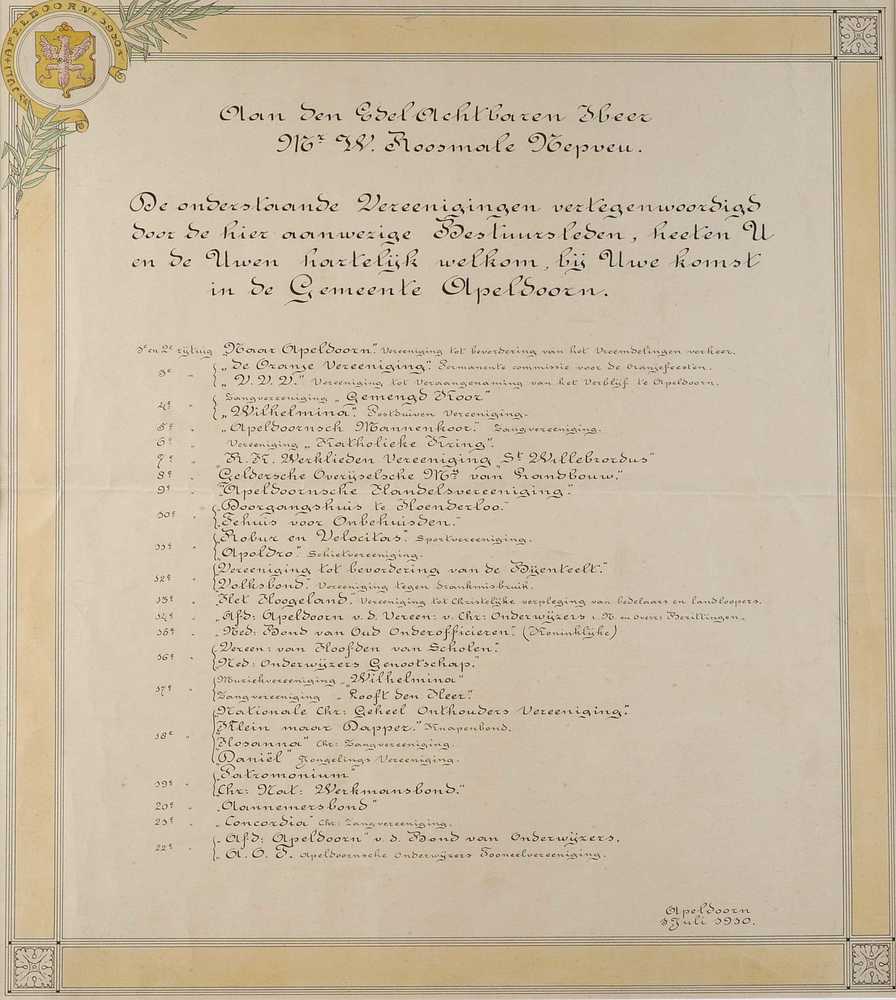 1 JULI * APELDOORN * 1910 *
Aan den Edel Achtbaren Heer
Mr W. Roosmale Nepveu.
De onderstaande Vereenigingen vertegenwoordigd
door de hier aanwezige Bestuursleden, heeten U
en de Uwen hartelijk welkom, bij Uwe komst
in de Gemeente Apeldoorn.
1e en 2e rijtuig „Naar Apeldoorn”. Vereeniging tot bevordering van het Vreemdelingen verkeer.
3e „ „de Oranje Vereeniging”. Permanente commissie voor de Oranjefeesten.
„V.V.V.” Vereeniging tot Veraangenaming van het Verblijf te Apeldoorn.
4e „ Zangvereeniging „Gemengd Koor”
„Wilhelmina”. Postduiven Vereeniging.
5e „ „Apeldoornsch Mannenkoor”. Zangvereeniging.
6e „ Vereeniging „Katholieke Kring”.
7e „ „R.K. Werklieden Vereeniging „St Willebrordus”
8e „ „Geldersche Overijselsche Mij van Landbouw.”
9e „ „Apeldoornsche Handelsvereeniging.”
10e „ „Doorgangshuis te Hoenderloo.”
„Tehuis voor Onbehuisden.”
11e „ „Robur en Velocitas”. Sportvereeniging.
„Apoldro”. Schietvereeniging.
12e „ „Vereeniging tot bevordering van de Bijenteelt.”
„Volksbond”. Vereeniging tegen drankmisbruik.
13e „ „Het Hoogeland”. Vereeniging tot Christelijke verpleging van bedelaars en landloopers.
14e „ „Afd: Apeldoorn v.d. Vereen: v. Chr: Onderwijzers i. N. en over: Bezittingen.
15e „ „Ned: Bond van Oud Onderofficieren”. (Koninklijke)
16e „ „Vereen: van Hoofden van Scholen”.
„Ned: Onderwijzers Genootschap.”
17e „ Muziekvereeniging „Wilhelmina”
Zangvereeniging „Looft den Heer”.
18e „ „Nationale Chr: Geheel Onthouders Vereeniging”.
„Klein maar Dapper.” Knapenbond.
„Hosanna” Chr: Zangvereeniging.
„Daniël” Jongelings Vereeniging.
19e „ „Patromonium”
„Chr: Nat: Werkmansbond.”
20e „ „Aannemersbond”
21e „ „Concordia” Chr: Zangvereeniging.
22e „ „Afd: Apeldoorn” v.d. Bond van Onderwijzers.
„A.O.T. Apeldoornsche Onderwijzers Tooneelvereeniging.
Apeldoorn
1 Juli 1910.